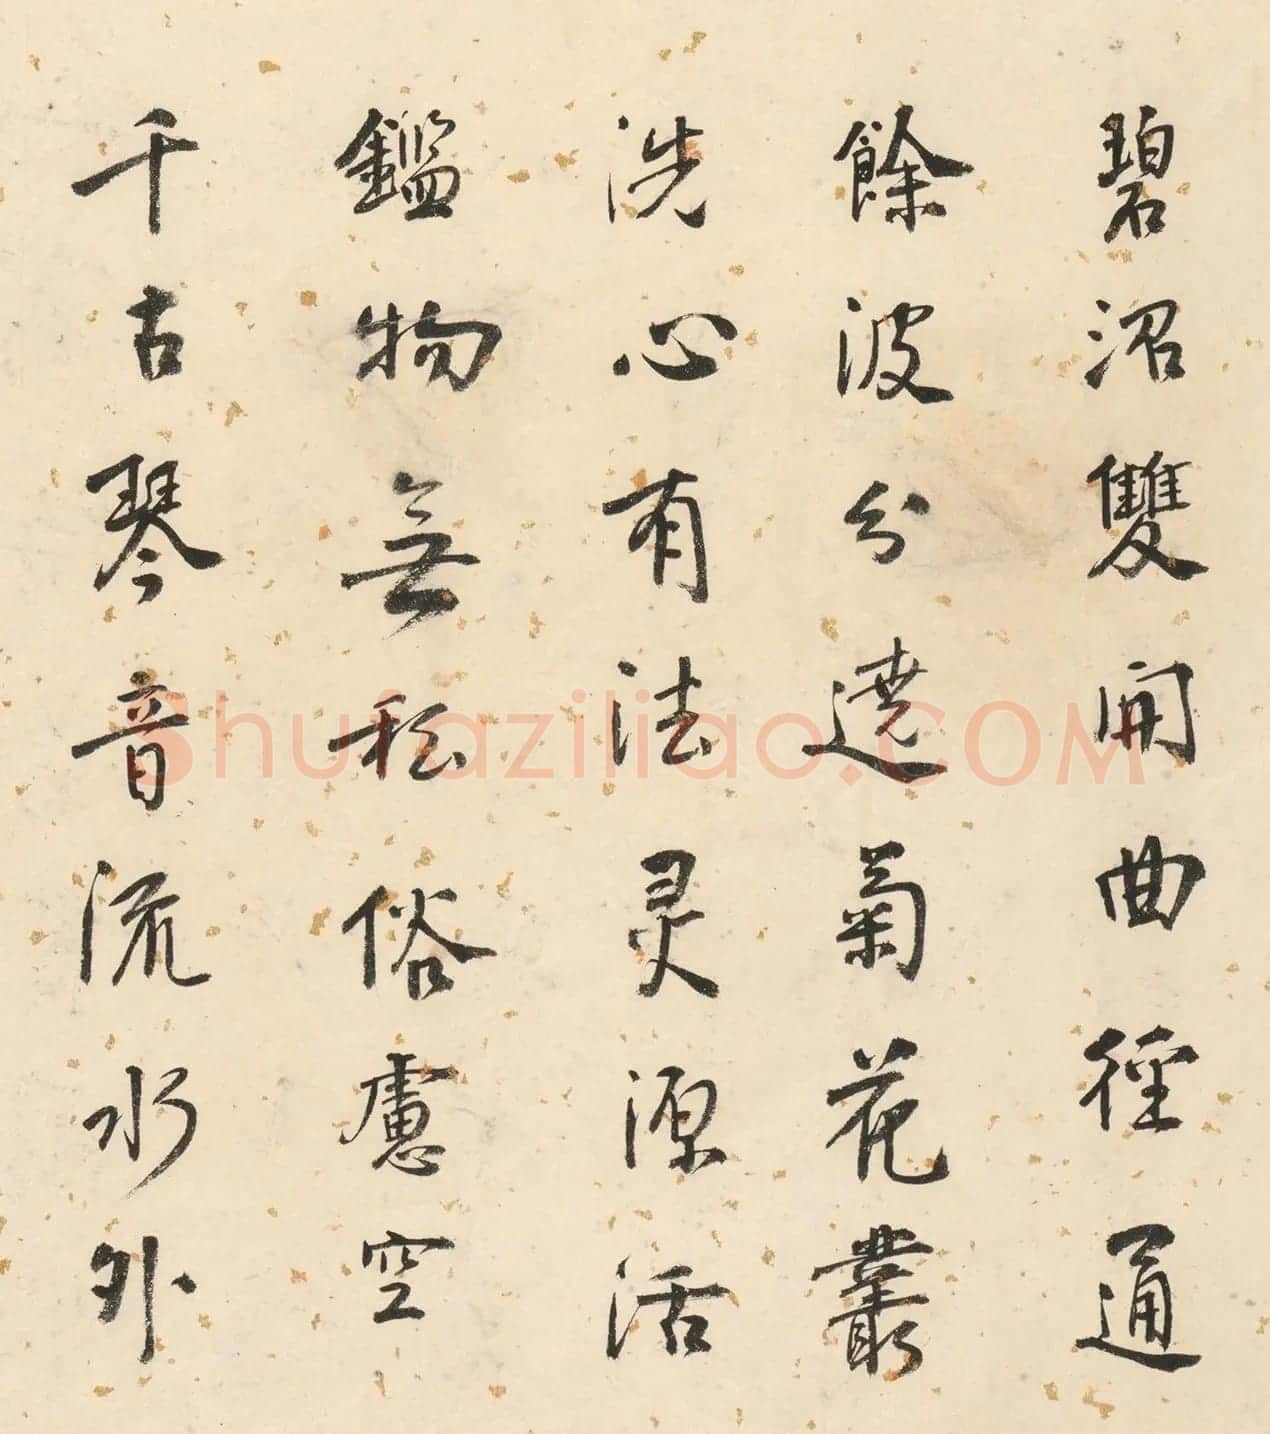 碧沼雙開曲徑通
餘波分遶菊花叢
洗心有法灵源活
鑑物無私俗慮空
千古琴音流水外
Shufaziliao.COM